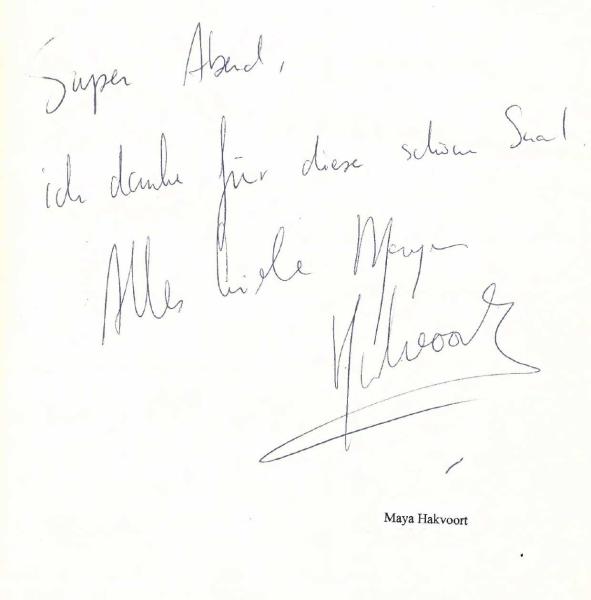 Super Abend,
ich danke für diese schöne Saal.
Alles Liebe Maya
Hakvoort
Maya Hakvoort